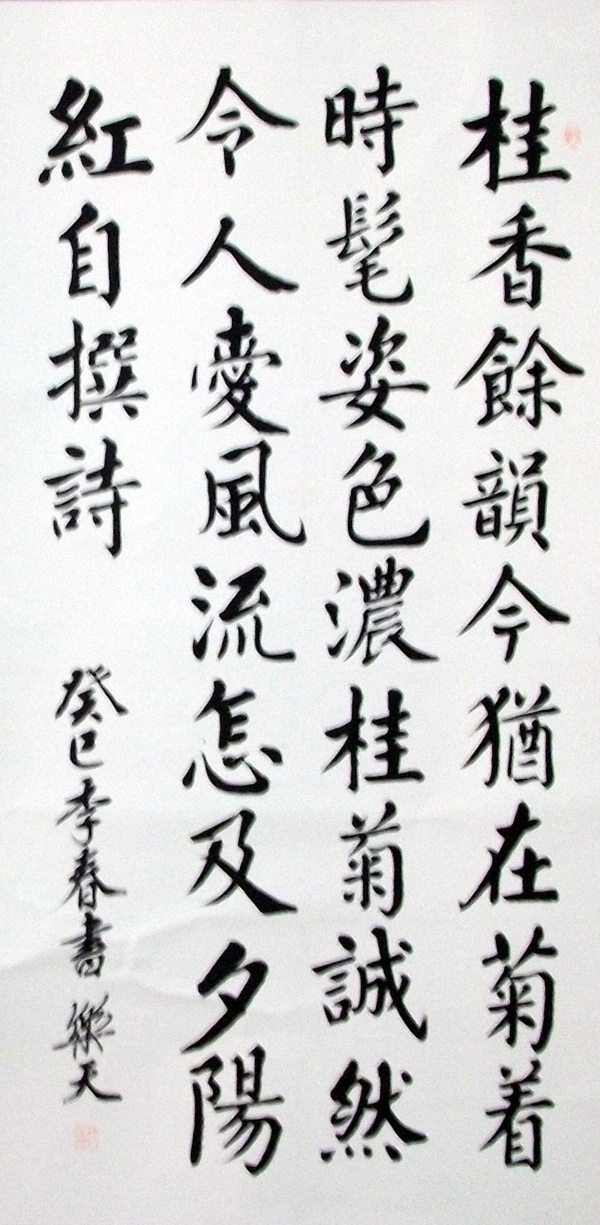 桂香餘韻今猶在菊着
時髦姿色濃桂菊誠然
令人愛風流怎及夕陽
紅自撰詩
癸巳季春書 樂天